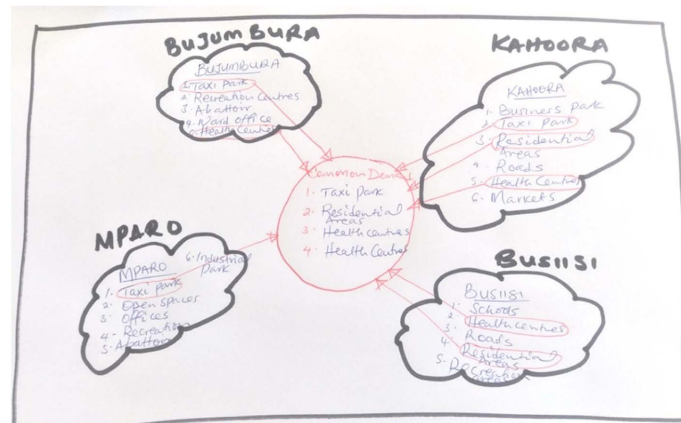 BUJUMBURA
BUJUMBURA
1. Taxi Park
2. Recreation Centres
3. Abattoir
4. Ward office
Health Centres
KAHOORA
KAHOORA
1. Business Park
2. Taxi Park
3. Residential
Areas
4. Roads
5. Health Centres
6. Markets
Common
1. Taxi Park
2. Residential
Areas
3. Health centres
4. Health Centres
MPARO
MPARO
1. Taxi park
2. Open spaces
3. Offices
4. Recreation
5. Abattoir
6. Industrial
Park
BUSIISI
BUSIISI
1. Schools
2. Health centres
3. Roads
4. Residential
Areas
5. Recreation